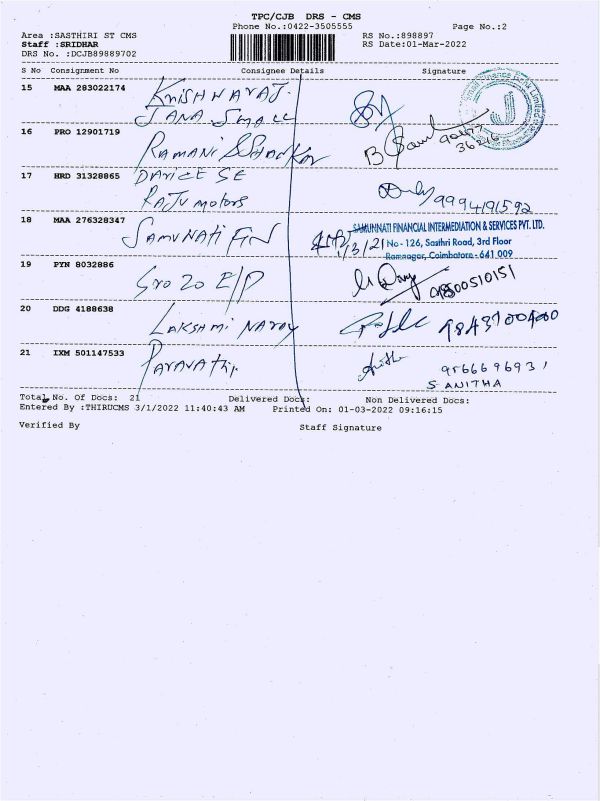 TPC/CJB DRS - CMS
Phone No.:0422-3505555
Page No.:2
Area :SASTHIRI ST CMS
RS No.:898897
Staff :SRIDHAR
RS Date:01-Mar-2022
DRS No. :DCJB89889702
S No Consignment No Consignee Details Signature
15 MAA 283022174 KRISHNARAJ.
JANA SMALL
16 PRO 12901719
RAMANI & SHANKAR
17 HRD 31328865
RAJU motors 9994191592
18 MAA 276328347 SAMUNATI FIN
SAMUNNATI FINANCIAL INTERMEDIATION & SERVICES PVT. LTD.
No - 126, Sasthri Road, 3rd Floor
Ramnagar, Coimbatore - 641 009
19 PYN 8032886
20 DDG 4188638
LAKSHMI NARAY
21 IXM 501147533
9566696931
S ANITHA
Total No. Of Docs: 21 Delivered Docs: Non Delivered Docs:
Entered By :THIRUCMS 3/1/2022 11:40:43 AM Printed On: 01-03-2022 09:16:15
Verified By Staff Signature